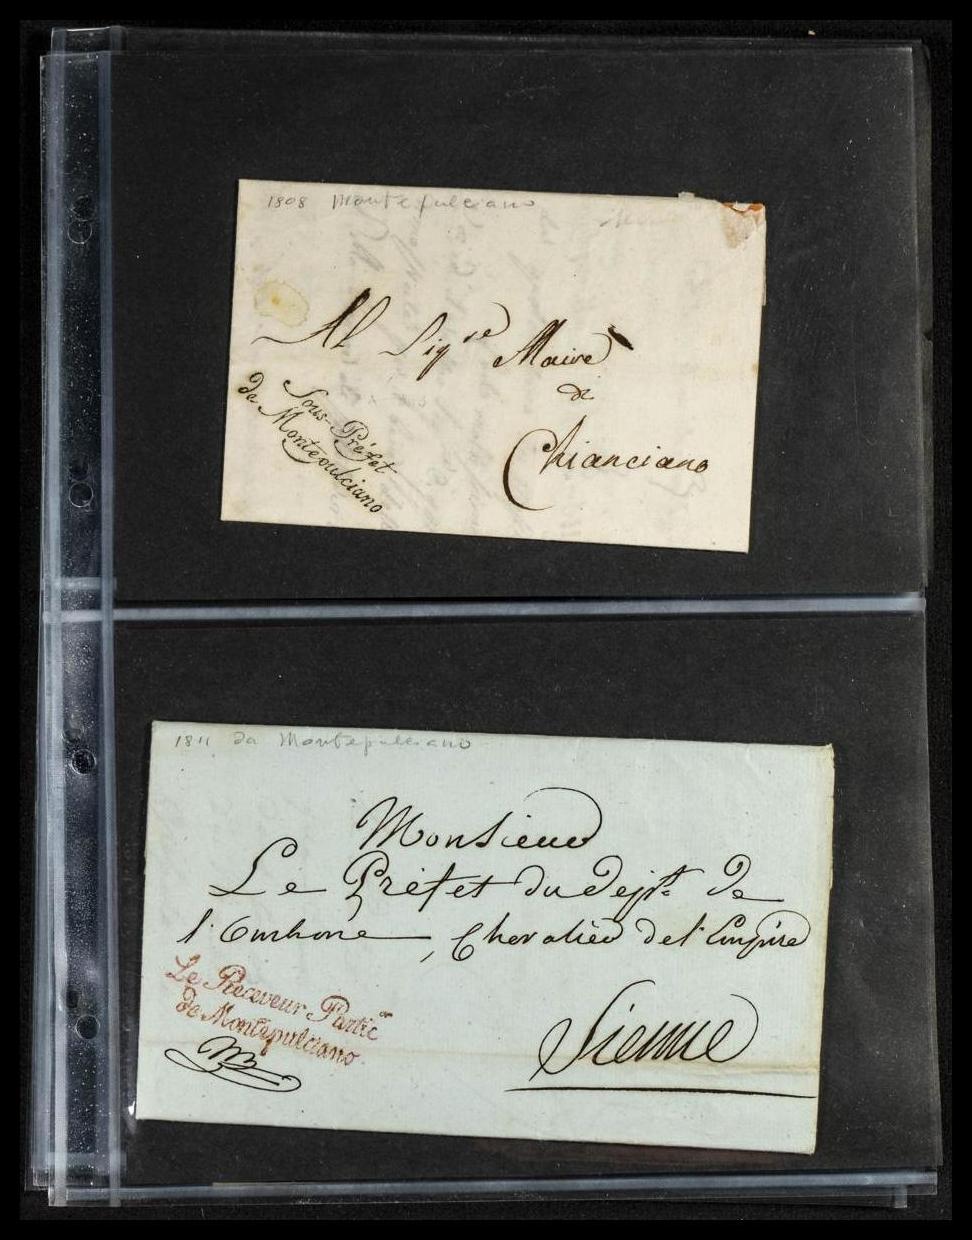 1808 Montepulciano
Al Sig.re Maire
di
Chianciano
Sous-Préfet
de Montepulciano
1811 da Montepulciano
Monsieur
Le Préfet du Dept. De
l'Ombrone, Chevalier de l'Empire
Sienne
Le Receveur Partic.er
de Montepulciano.